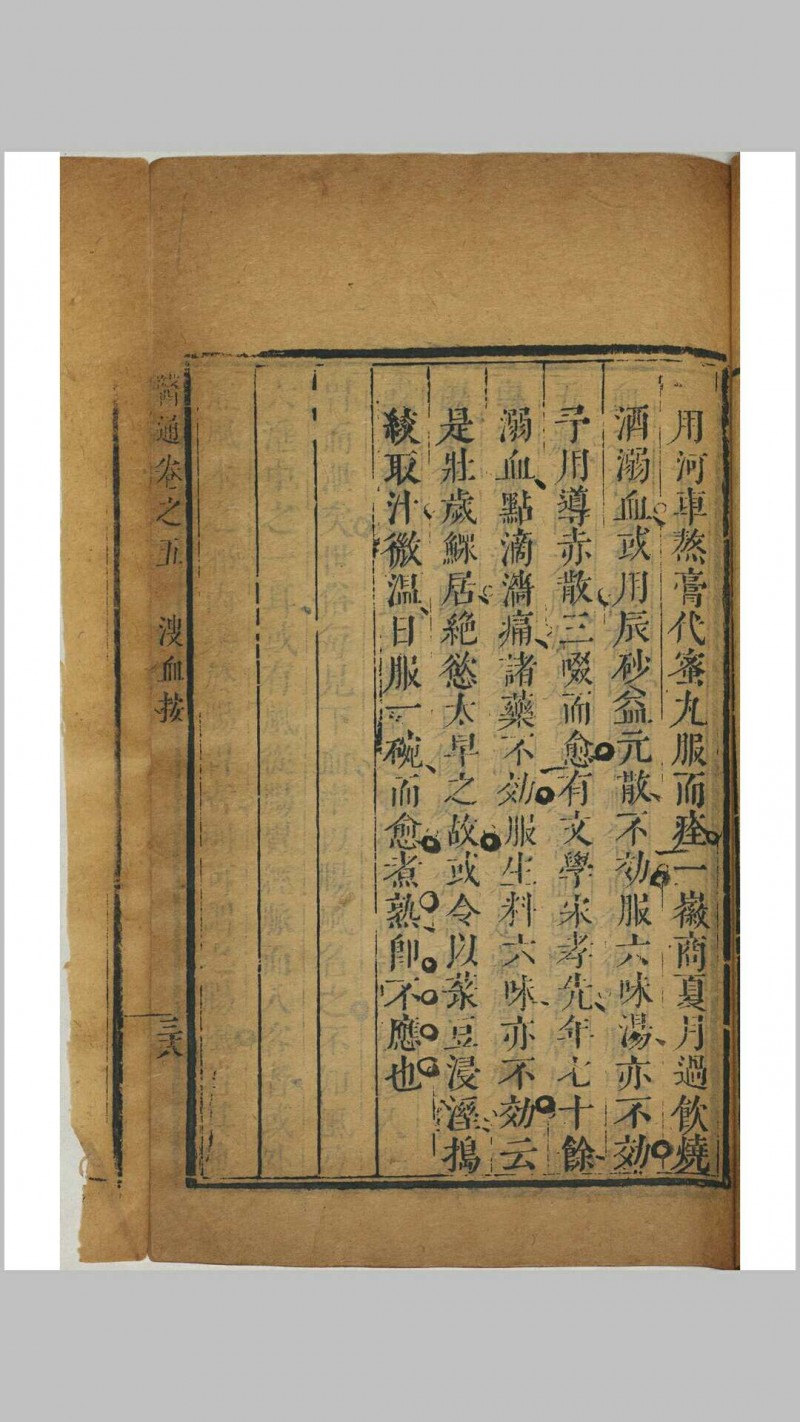 用河車熬膏代蜜丸服而痊一徽商夏月過飲燒
酒溺血或用辰砂益元散不効服六味湯亦不効
予用導赤散三啜而愈有文學宋孝先年七十餘
溺血點滴濇痛諸藥不効服生料六味亦不効云
是壯歲鰥居絶慾太早之故或令以菉豆浸溼搗
絞取汁微温日服一碗而愈煮熟卽不應也
醫通卷之五 溲血按 三六